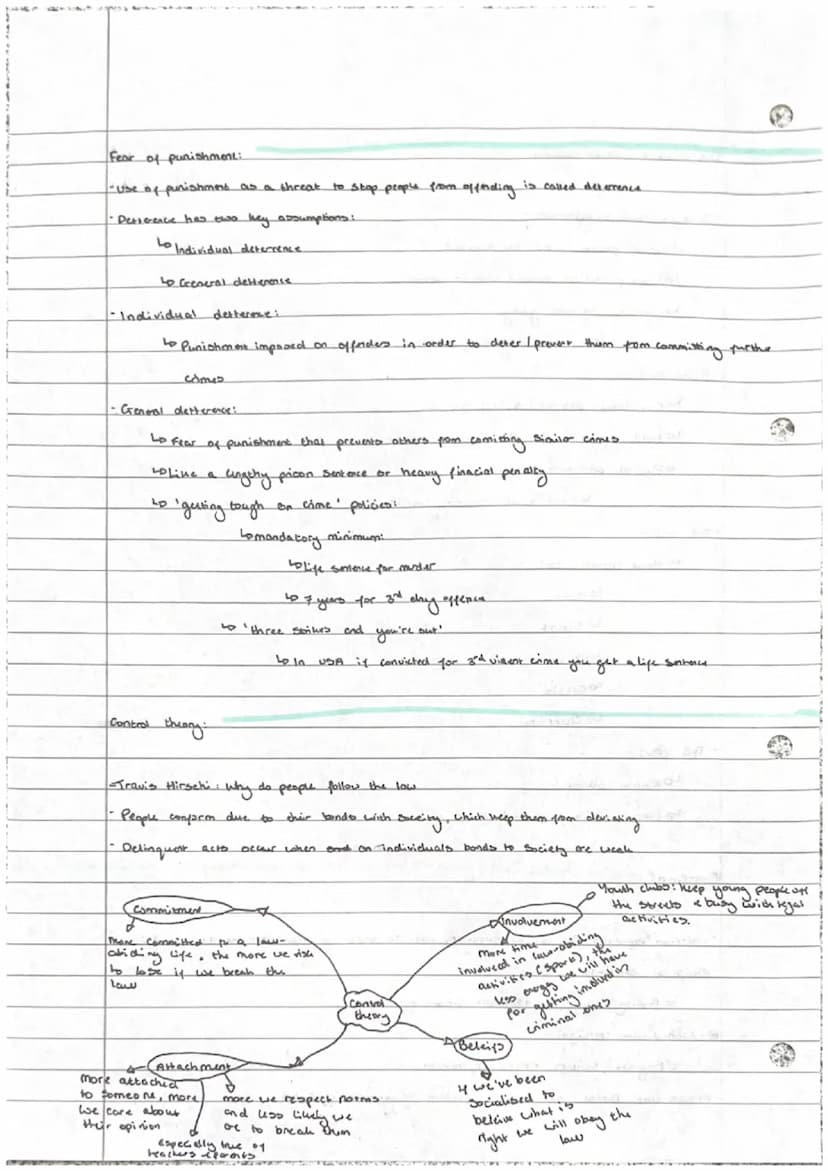 Fear of punishment:
- Use of punishment as a threat to stop people from offending is called deterrence
- Deterrence has two key assumptions:
↳ Individual deterrence
↳ General detterence
- Individual detterence:
↳ Punishment imposed on offenders in order to deter / prevent them from committing further
crimes
- General detterence:
↳ Fear of punishment that prevents others from comitting similar crimes
↳ Like a lengthy prison sentence or heavy finacial penalty
↳ 'getting tough on crime' policies:
↳ mandatory minimum:
↳ life sentence for murder
↳ 7 years for 3rd drug offence
↳ 'three strikes and you're out'
↳ In USA if convicted for 3rd violent crime you get a life sentence
Control theory:
- Travis Hirschi: Why do people follow the law
- People conform due to their bonds with society, which keep them from deviating
- Delinquent acts occur when an individuals bonds to society are weak
Commitment
More committed to a law-
abiding life, the more we risk
to lose if we break the
law
Involvement
Youth clubs: keep young people off
the streets & busy with legal
activities.
More time
involved in law-abiding
activities (sport), the
less energy we will have
for getting involved in
criminal ones
Control
theory
Attachment
More attached
to someone, more
we care about
their opinion
more we respect norms
and less likely we
are to break them
especially true of
teachers & parents
Beleifs
If we've been
socialised to
beleive what is
right we will obey the
law